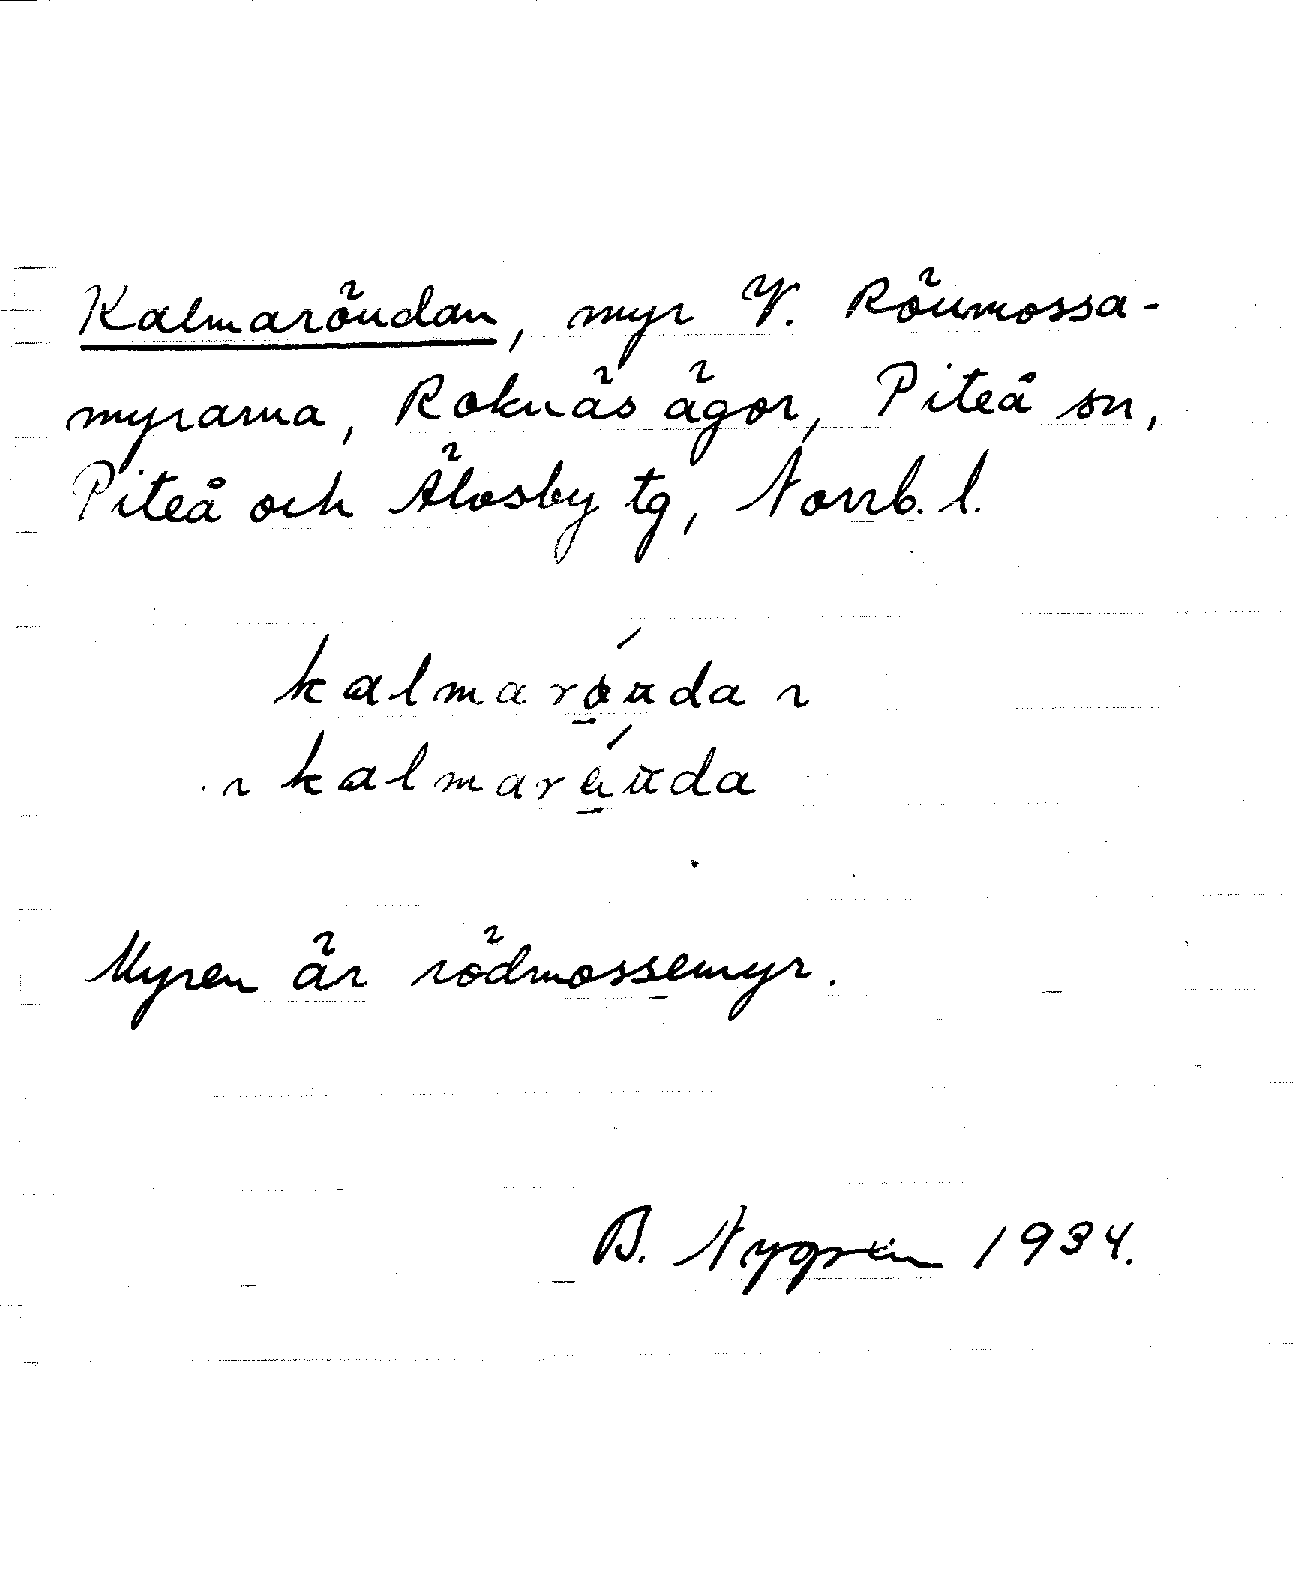 Kalmaröudan, myr V. Röumossa-
myrarna, Roknäs ägor, Piteå sn,
Piteå och Älvsby tg, Norrb. l.
kalmaróuda ~
~ kalmaréuda
Myren är rödmossemyr.
B. Nygren 1934.